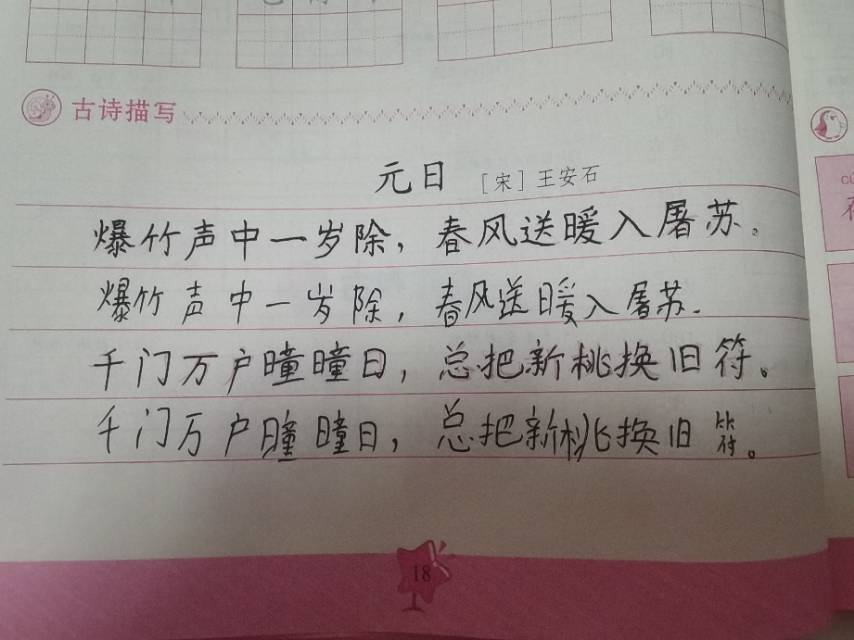 古诗描写
元日 [宋]王安石
爆竹声中一岁除，春风送暖入屠苏。
爆竹声中一岁除，春风送暖入屠苏.
千门万户曈曈日，总把新桃换旧符。
千门万户曈曈日，总把新桃换旧符。
18